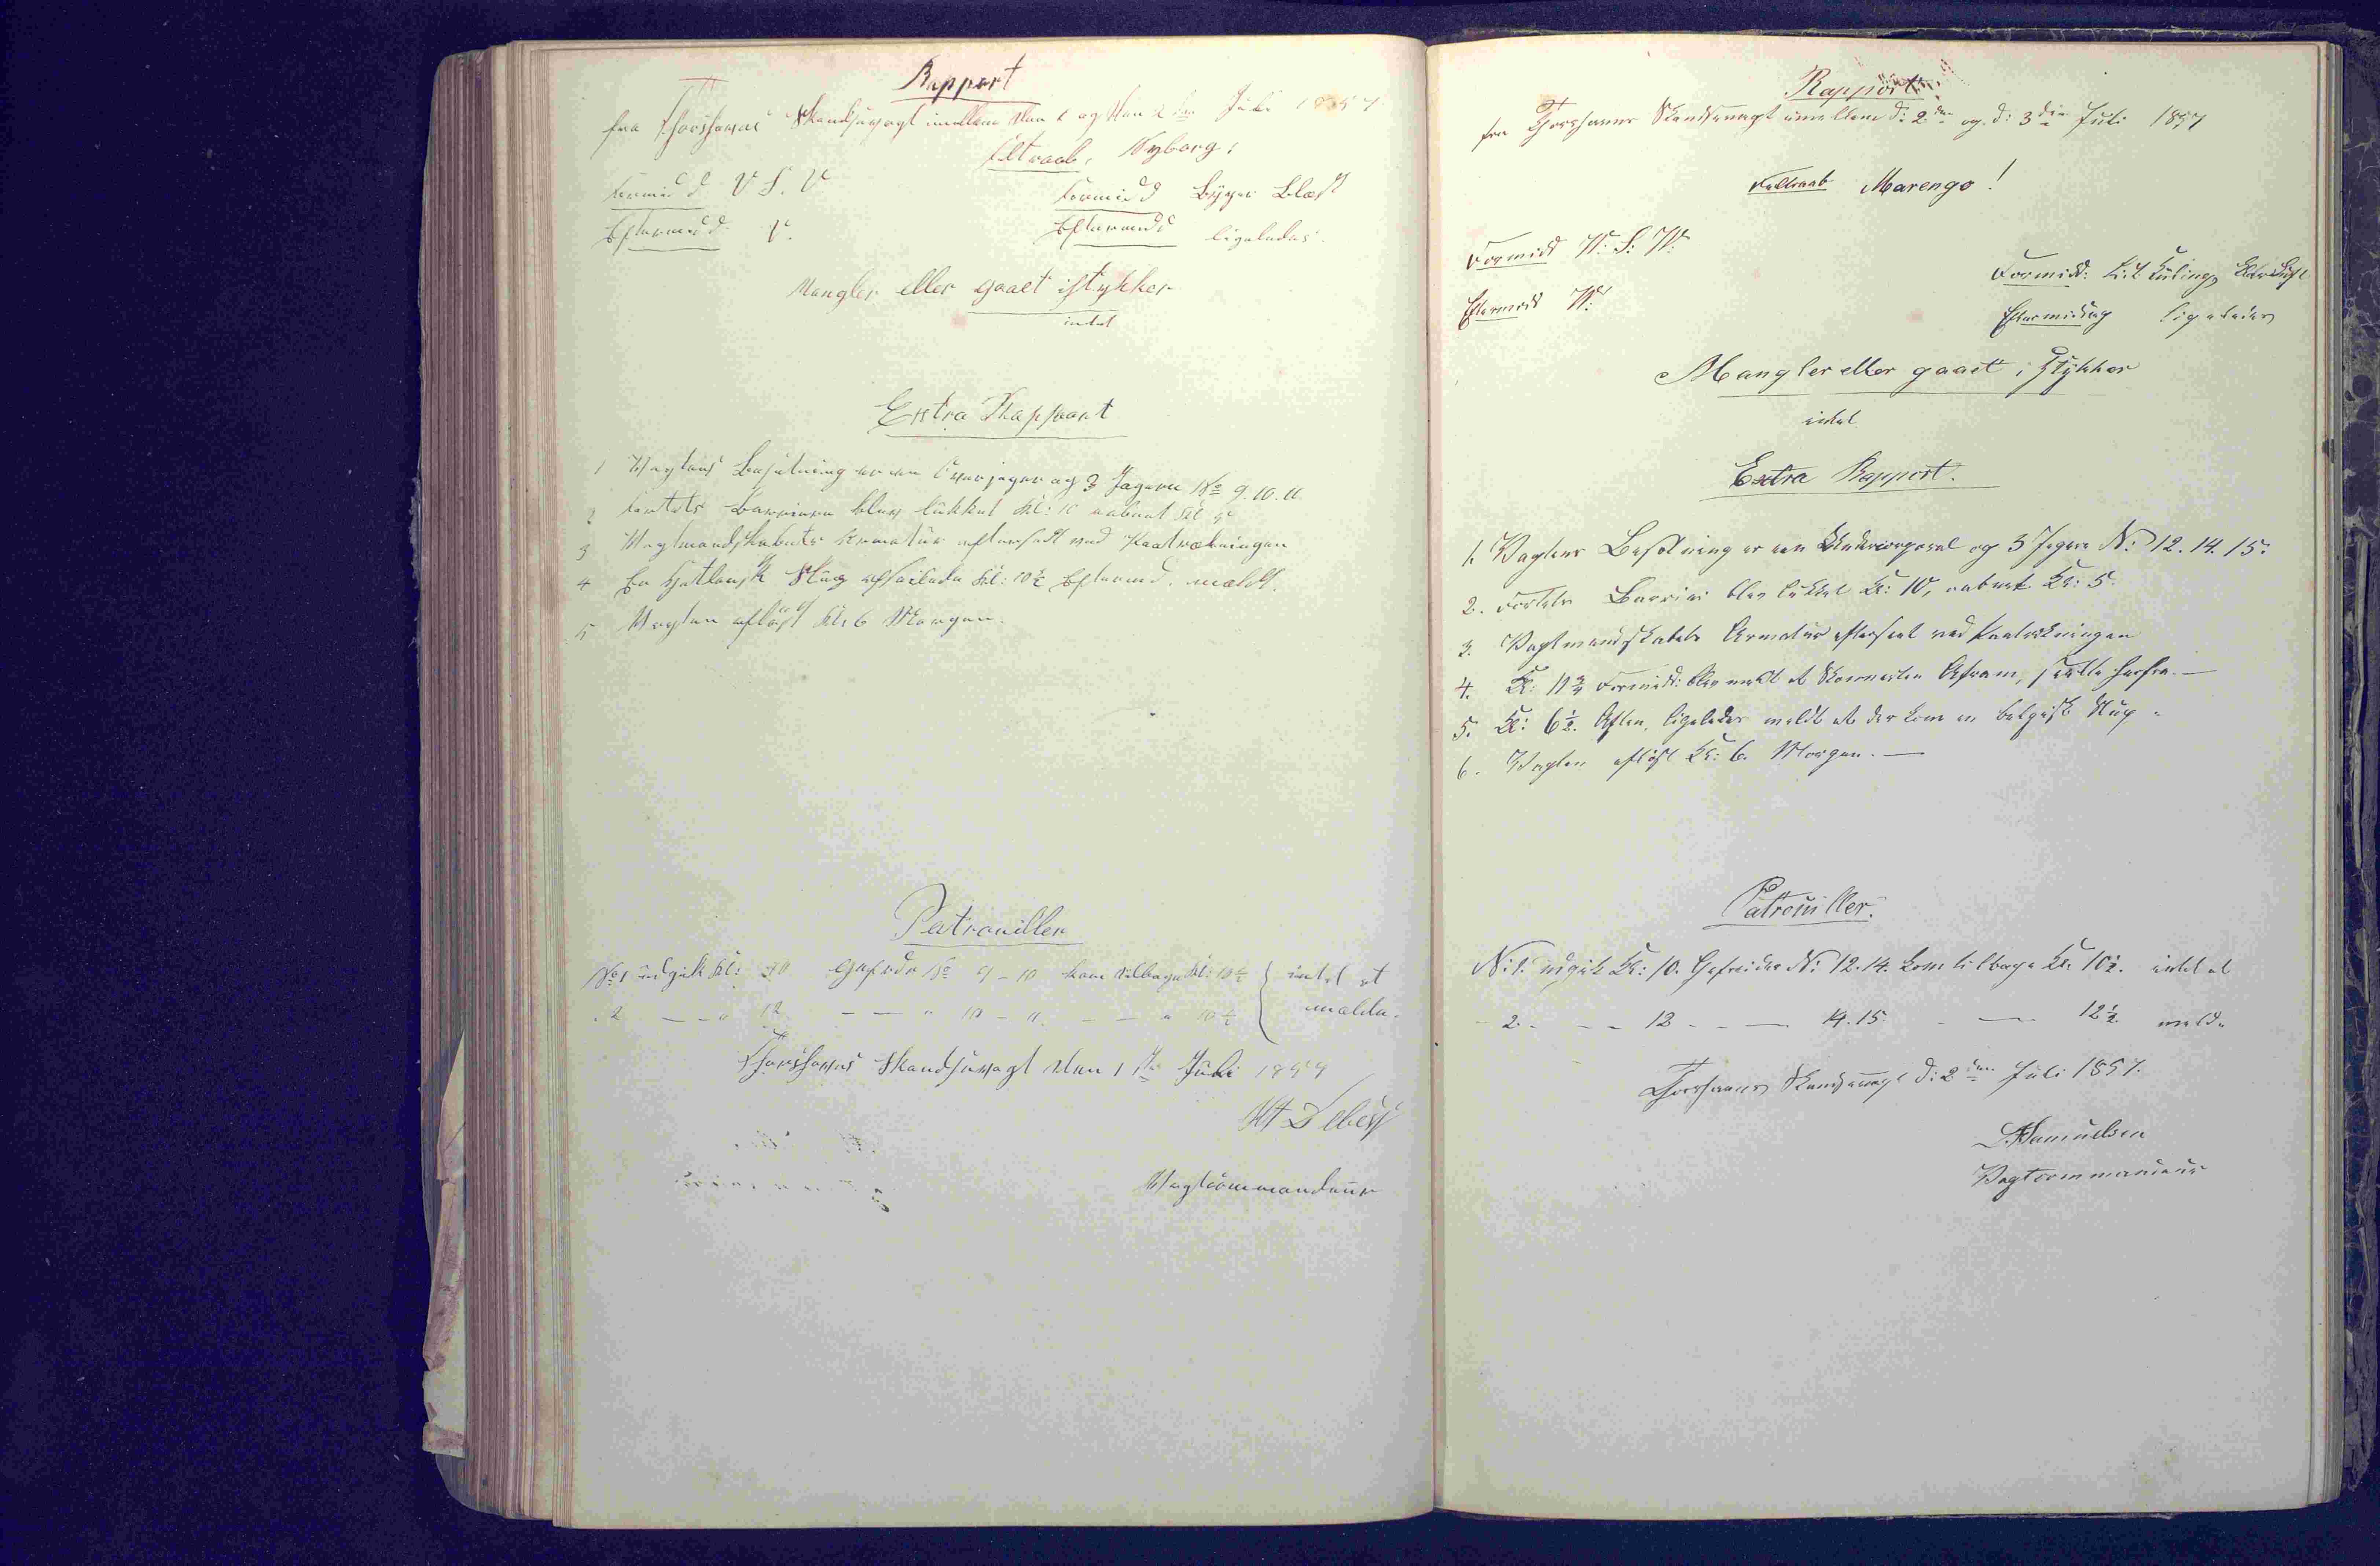 Rapport
fra Thorshavns Skandsevagt imellem den 1 og den 2den Juli 1857
Feltraab: Nyborg:
Formidd V. S. V
Formidd Byger Blæst
Eftermidd V.
Eftermidd ligeledes.
Mangler eller gaaet istykker
intet
Extra Rapport
1 Vagtens Besætning er en Overjæger og 3 Jægere No 9. 10. 11.
2 Fortets Barriere blev lukket Kl: 10 aabnet Kl 5
3 Vagtmandskabets Armatur efterseet ved Paatrækningen
4 En Hjetlansk Slup afseilede Kl: 10½ Eftermd. meldt.
5 Vagten afløst Kl: 6 Morgen.
Patrouiller
No 1 udgik Kl: 10 Gefrider No 9 - 10 kom tilbage Kl: 10½ intet at
. 2 — — " 12 — — " 10 - 11. — — " 12½ melde.
Thorshavns Skandsevagt den 1ste Juli 1857
Debess
Vagtcommandeur
Rapport
fra Thorshavns Skandsevagt imellem d: 2den og d: 3die Juli 1857
Feltraab Marengo!
Formidd V. S: V.
Formidd: let Kuling, Klar Luft
Eftermidd V.
Eftermiddag ligeledes
Mangler eller gaaet i Stykker
intet
Extra Rapport.
1. Vagtens Besætning er een Undercorporal og 3 Jægere N: 12. 14. 15.
2. Fortets Barriere blev lukket Kl: 10, aabnet Kl: 5.
3. Vagtmandskabets Armatur efterseet ved Paatrækningen
4. Kl: 11¾ Formidd: blev meldt at Skonnerten Afram, seilte herfra. —
5. Kl: 6½. Aften, ligeledes meldt at der kom en belgisk Slup -
6. Vagten afløst Kl: 6. Morgen. —
Patrouiller.
N: 1. udgik Kl: 10. Gefreider N: 12. 14. kom tilbage Kl: 10½. intet at
- 2. - - 12 - - — 14. 15. - — 12½ melde
Thorshavns Skandsevagt d: 2den Juli 1857.
Samuelsen
Vagtcommandeur